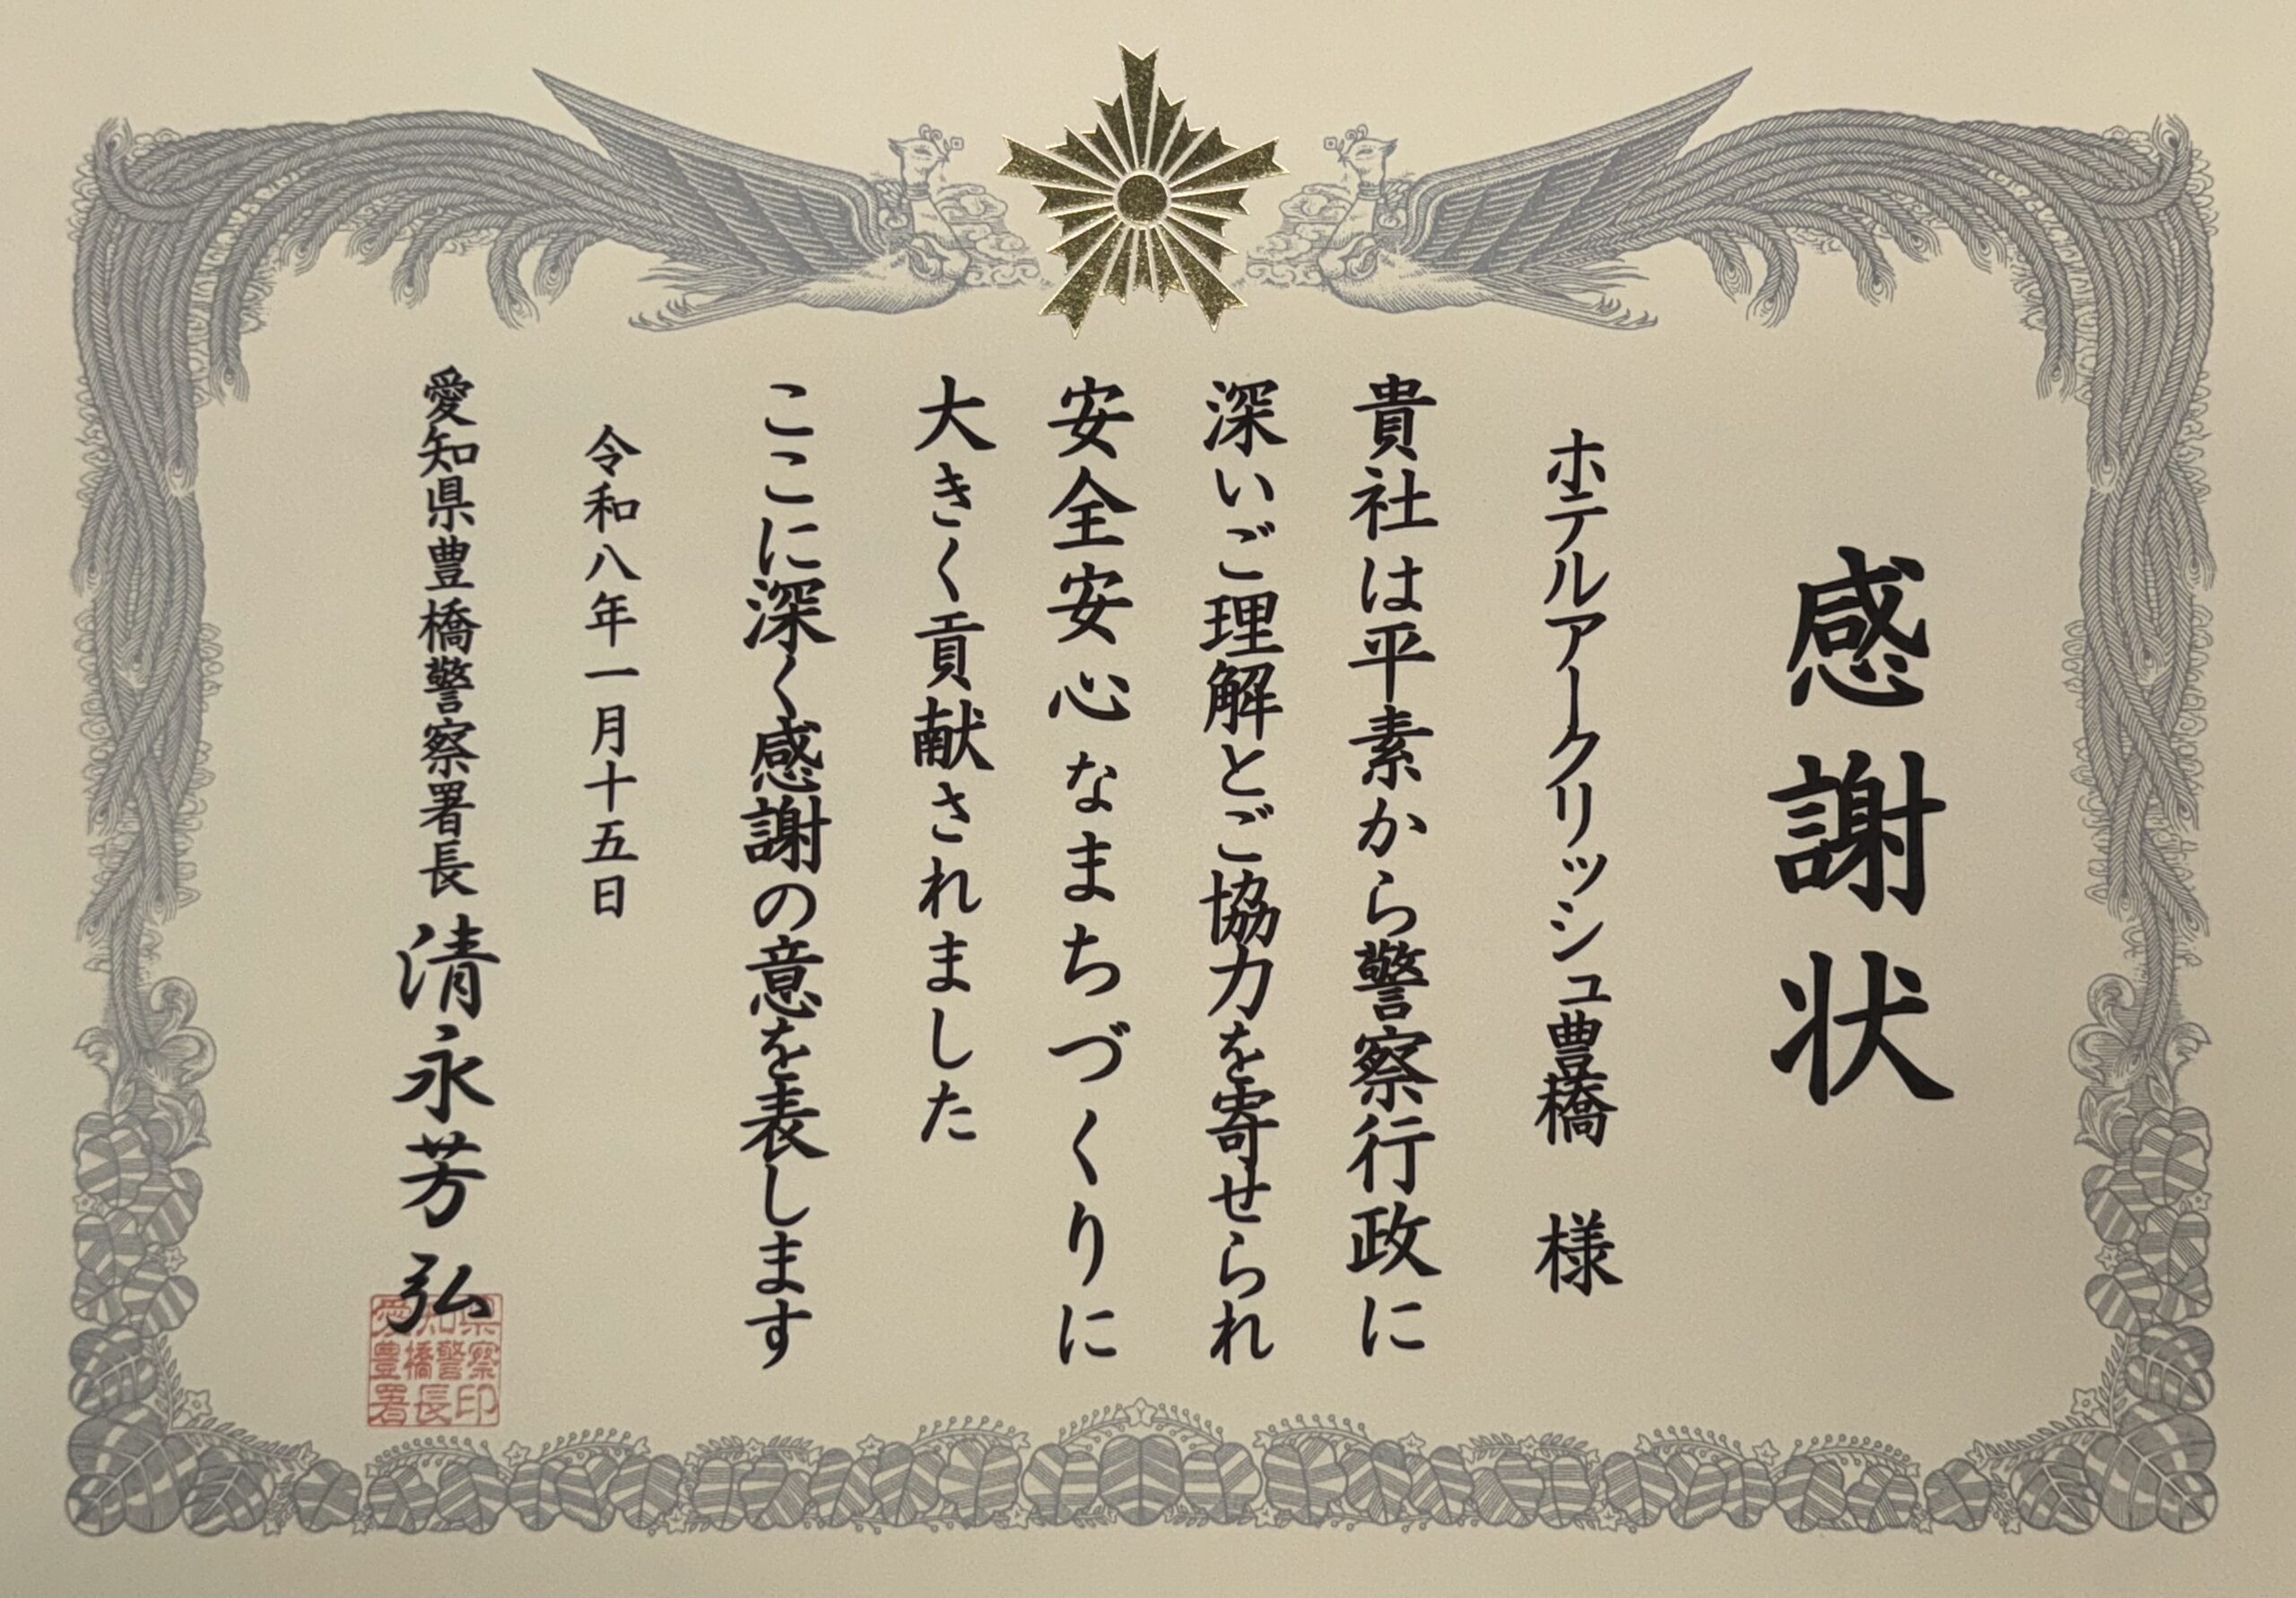 感謝状
ホテルアークリッシュ豊橋 様
貴社は平素から警察行政に
深いご理解とご協力を寄せられ
安全安心なまちづくりに
大きく貢献されました
ここに深く感謝の意を表します
令和八年一月十五日
愛知県豊橋警察署長 清永芳弘
愛知県
豊橋警察
署長印